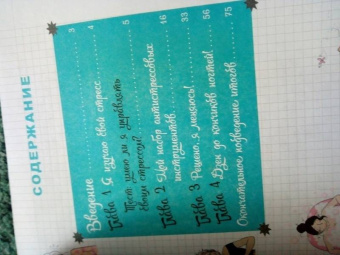 СОДЕРЖАНИЕ
Введение 3
Глава 1 Я изучаю свой стресс 4
Тест: умею ли я управлять 5
своим стрессом?
Глава 2 Мой набор антистрессовых
инструментов 16
Глава 3 Решено, я меняюсь! 33
Глава 4 Дзен до кончиков ногтей! 56
Окончательное подведение итогов 75